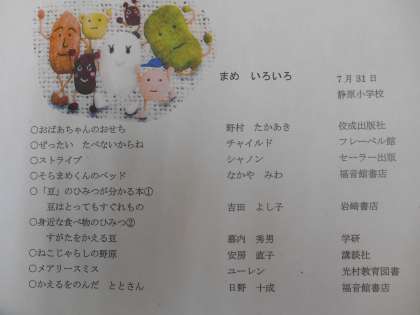 まめ いろいろ
7月31日
静原小学校
○おばあちゃんのおせち 野村 たかあき 佼成出版社
○ぜったい たべないからね チャイルド フレーベル館
○ストライプ シャノン セーラー出版
○そらまめくんのベッド なかや みわ 福音館書店
○「豆」のひみつが分かる本①
豆はとってもすぐれもの 吉田 よし子 岩崎書店
○身近な食べ物のひみつ②
すがたをかえる豆 幕内 秀男 学研
○ねこじゃらしの野原 安房 直子 講談社
○メアリースミス ユーレン 光村教育図書
○かえるをのんだ ととさん 日野 十成 福音館書店